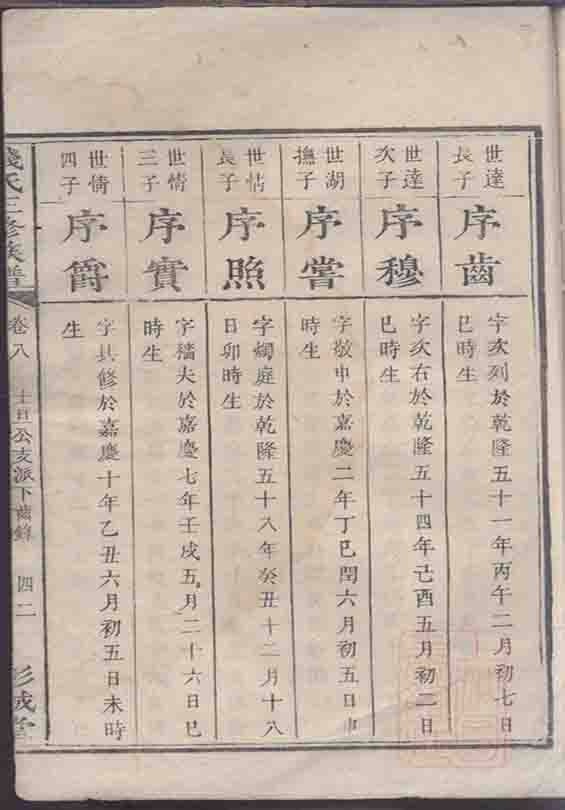 世達長子
序齒
字次列於乾隆五十一年丙午二月初七日
巳時生
世達次子
序穆
字次右於乾隆五十四年己酉五月初二日
巳時生
世湖撫子
序嘗
字敬中於嘉慶二年丁巳閏六月初五日申
時生
世情長子
序照
字燭庭於乾隆五十八年癸丑十二月十八
日卯時生
世情三子
序實
字穡夫於嘉慶七年壬戌五月二十六日巳
時生
世情四子
序爵
字具修於嘉慶十年乙丑六月初五日未時
生
錢氏三修族譜
卷八
公支派下齒錄
四二
彭城堂